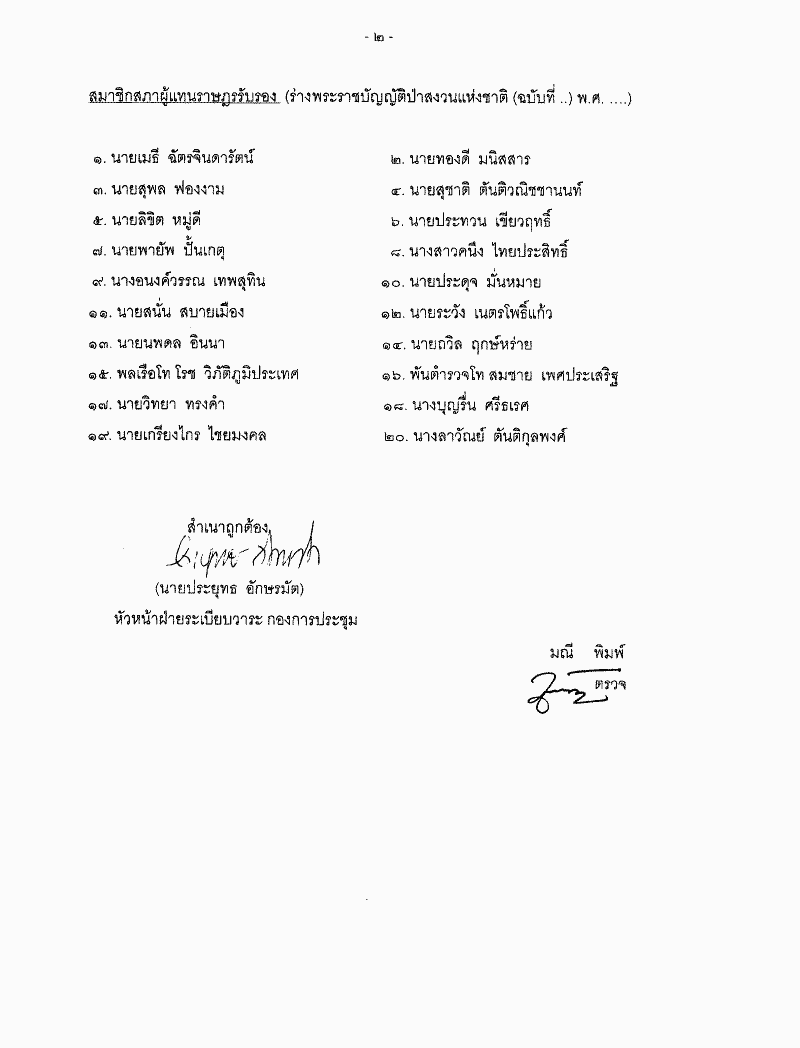 - ๒ -
สมาชิกสภาผู้แทนราษฎรรับรอง (ร่างพระราชบัญญัติป่าสงวนแห่งชาติ (ฉบับที่ ..) พ.ศ. ....)
๑. นายเมธี ฉัตรจินดารัตน์ ๒. นายทองดี มนิสสาร
๓. นายสุพล ฟองงาม ๔. นายสุชาติ ตันติวณิชชานนท์
๕. นายลิขิต หมู่ดี ๖. นายประทวน เขียวฤทธิ์
๗. นายพายัพ ปั้นเกตุ ๘. นางสาวคนึง ไทยประสิทธิ์
๙. นางอนงค์วรรณ เทพสุทิน ๑๐. นายประดุจ มั่นหมาย
๑๑. นายสนั่น สบายเมือง ๑๒. นายระวัง เนตรโพธิ์แก้ว
๑๓. นายนพดล อินนา ๑๔. นายถวิล ฤกษ์หร่าย
๑๕. พลเรือโท โรช วิภัติภูมิประเทศ ๑๖. พันตำรวจโท สมชาย เพศประเสริฐ
๑๗. นายวิทยา ทรงคำ ๑๘. นางบุญรื่น ศรีธเรศ
๑๙. นายเกรียงไกร ไชยมงคล ๒๐. นางลาวัณย์ ตันติกุลพงศ์
สำเนาถูกต้อง
(นายประยุทธ อักษรมัต)
หัวหน้าฝ่ายระเบียบวาระ กองการประชุม
มณี พิมพ์
ตรวจ